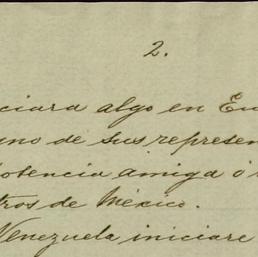 2.
ciara algo en Eu
uno de sus represen
potencia amiga ó
tros de México.
Venezuela iniciare